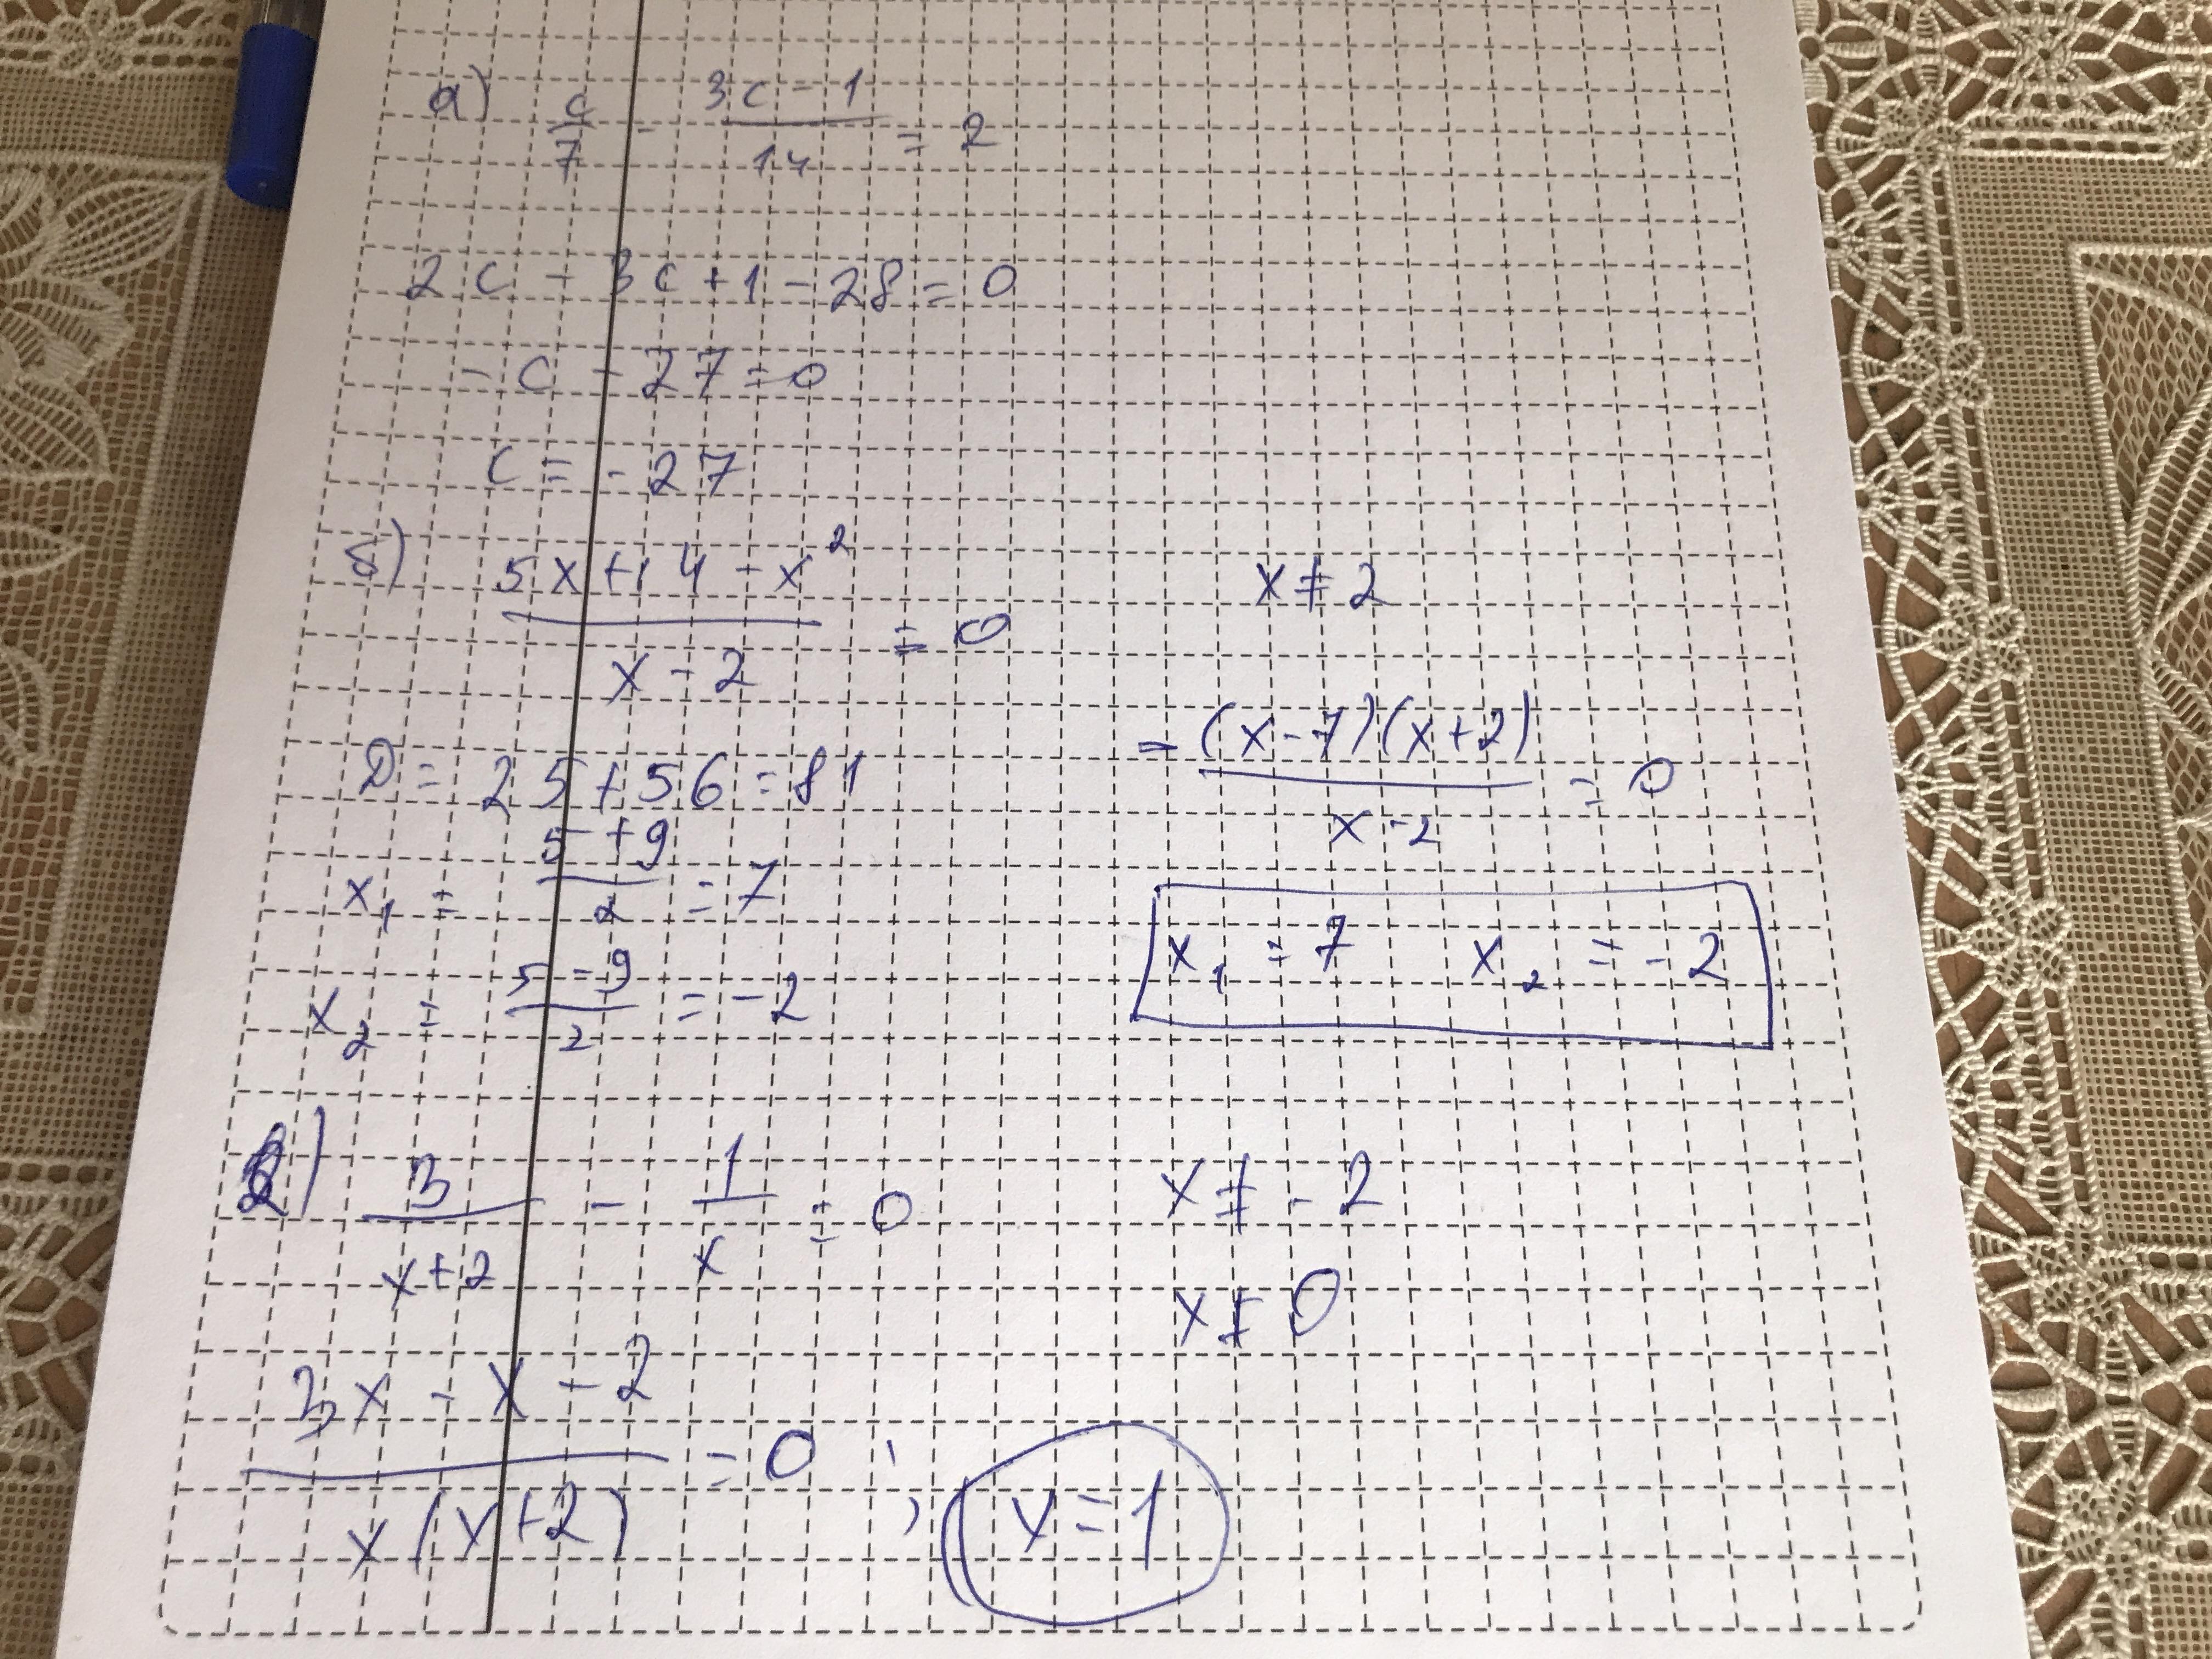 а) c/7 - (3c - 1)/14 = 2
2c - 3c + 1 - 28 = 0
- c - 27 = 0
c = - 27
б) (5x + 14 - x²)/(x - 2) = 0
x ≠ 2
D = 25 + 56 = 81
x₁ = (5 + 9)/2 = 7
x₂ = (5 - 9)/2 = -2
= (x - 7)(x + 2)/(x - 2) = 0
x₁ = 7 x₂ = - 2
3/(x + 2) - 1/x = 0
x ≠ - 2
x ≠ 0
(3x - x - 2)/(x(x + 2)) = 0 ; x = 1